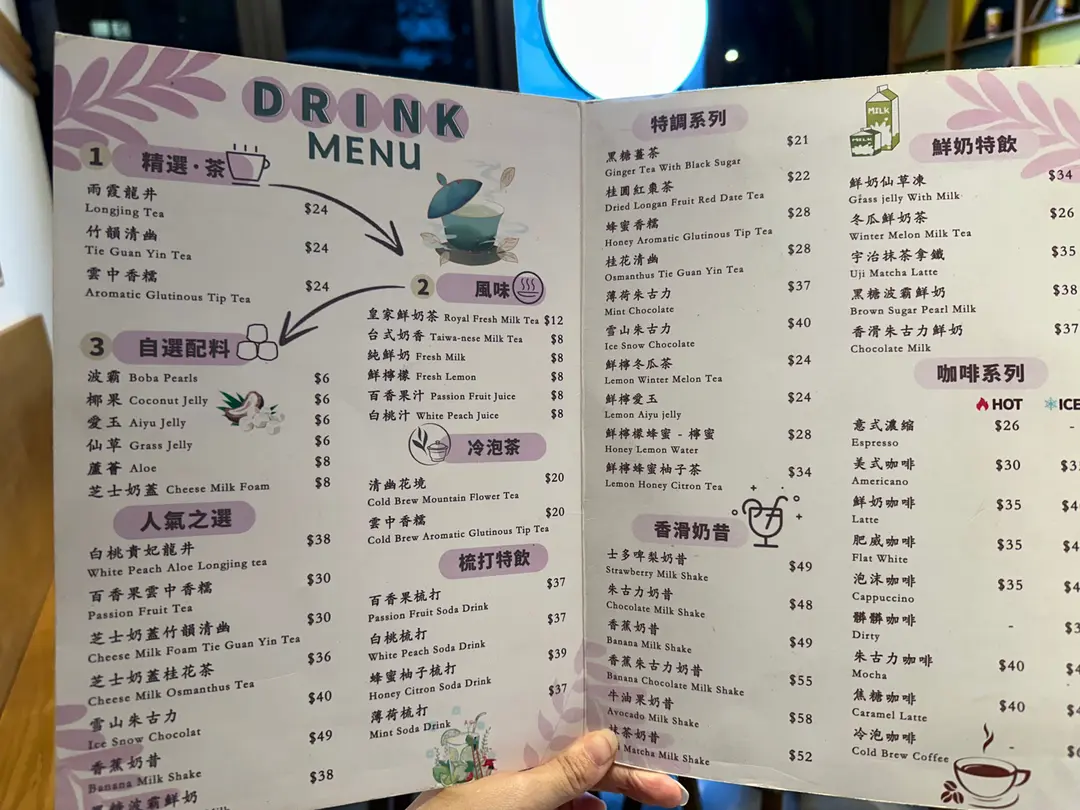 DRINK
MENU
1
精選·茶
雨霞龍井
Longjing Tea
$24
竹韻清幽
Tie Guan Yin Tea
$24
雲中香糯
Aromatic Glutinous Tip Tea
$24
2
風味
皇家鮮奶茶 Royal Fresh Milk Tea $12
台式奶香 Taiwa-nese Milk Tea $8
純鮮奶 Fresh Milk $8
鮮檸檬 Fresh Lemon $8
百香果汁 Passion Fruit Juice $8
白桃汁 White Peach Juice $8
3
自選配料
波霸 Boba Pearls $6
椰果 Coconut Jelly $6
愛玉 Aiyu Jelly $6
仙草 Grass Jelly $6
蘆薈 Aloe $8
芝士奶蓋 Cheese Milk Foam $8
人氣之選
白桃貴妃龍井 $38
White Peach Aloe Longjing tea
百香果雲中香糯 $30
Passion Fruit Tea
芝士奶蓋竹韻清幽 $30
Cheese Milk Foam Tie Guan Yin Tea
芝士奶蓋桂花茶 $36
Cheese Milk Osmanthus Tea
雪山朱古力 $40
Ice Snow Chocolat
香蕉奶昔 $49
Banana Milk Shake
黑糖波霸鮮奶 $38
冷泡茶
清幽花境 $20
Cold Brew Mountain Flower Tea
雲中香糯 $20
Cold Brew Aromatic Glutinous Tip Tea
梳打特飲
百香果梳打 $37
Passion Fruit Soda Drink
白桃梳打 $37
White Peach Soda Drink
蜂蜜柚子梳打 $39
Honey Citron Soda Drink
薄荷梳打 $37
Mint Soda Drink
特調系列
黑糖薑茶 $21
Ginger Tea With Black Sugar
桂圓紅棗茶 $22
Dried Longan Fruit Red Date Tea
蜂蜜香糯 $28
Honey Aromatic Glutinous Tip Tea
桂花清幽 $28
Osmanthus Tie Guan Yin Tea
薄荷朱古力 $37
Mint Chocolate
雪山朱古力 $40
Ice Snow Chocolate
鮮檸冬瓜茶 $24
Lemon Winter Melon Tea
鮮檸愛玉 $24
Lemon Aiyu jelly
鮮檸檬蜂蜜 - 檸蜜 $28
Honey Lemon Water
鮮檸蜂蜜柚子茶 $34
Lemon Honey Citron Tea
香滑奶昔
士多啤梨奶昔 $49
Strawberry Milk Shake
朱古力奶昔 $48
Chocolate Milk Shake
香蕉奶昔 $49
Banana Milk Shake
香蕉朱古力奶昔 $55
Banana Chocolate Milk Shake
牛油果奶昔 $58
Avocado Milk Shake
抹茶奶昔 $52
Matcha Milk Shake
MILK
鮮奶特飲
鮮奶仙草凍 $34
Grass jelly With Milk
冬瓜鮮奶茶 $26
Winter Melon Milk Tea
宇治抹茶拿鐵 $35
Uji Matcha Latte
黑糖波霸鮮奶 $38
Brown Sugar Pearl Milk
香滑朱古力鮮奶 $37
Chocolate Milk
咖啡系列
HOT ICE
意式濃縮 $26 -
Espresso
美式咖啡 $30
Americano
鮮奶咖啡 $35
Latte
肥威咖啡 $35
Flat White
泡沫咖啡 $35
Cappuccino
髒髒咖啡 -
Dirty
朱古力咖啡 $40
Mocha
焦糖咖啡 $40
Caramel Latte
冷泡咖啡 -
Cold Brew Coffee